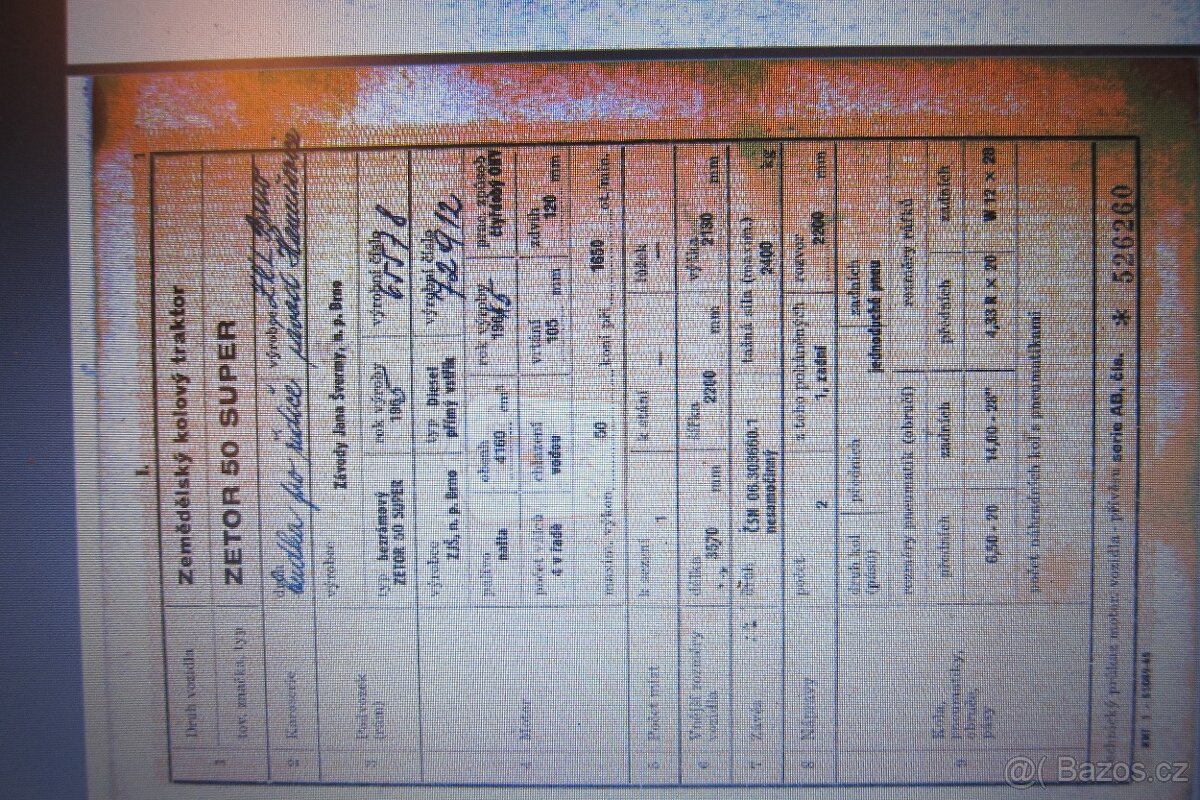 I.
1 Druh vozidla Zemědělský kolový traktor
tov. značka, typ ZETOR 50 SUPER
2 Karoserie druh výrobce
budka pro řidiče
3 Podvozek (rám) výrobce Závody Jana Švermy, n. p. Brno
typ bezrámový ZETOR 50 SUPER rok výroby 1965 výrobní číslo
4 Motor výrobce ZJŠ, n. p. Brno typ Diesel přímý vstřik výrobní číslo 72912
palivo nafta obsah 4160 cm³ rok výroby 1965 prac. způsob čtyřdobý OHV
počet válců 4 v řadě chlazení vodou vrtání 105 mm zdvih 120 mm
maxim. výkon 50 koní při 1650 ot./min.
5 Počet míst k sezení 1 k stání — lůžek —
6 Vnější rozměry vozidla délka 3570 mm šířka 2200 mm výška 2130 mm
7 Závěs druh ČSN 06.303660.1 nesamočinný tažná síla (maxim.) 2400 kg
8 Nápravy počet 2 z toho poháněných 1, zadní rozvor 2260 mm
9 Kola, pneumatiky, obruče, pásy druh kol (pásů) předních zadních
jednoduchá pneu
rozměry pneumatik (obručí) rozměry ráfků
předních zadních předních zadních
6,50 - 20 14,00 - 28" 4,33 R × 20 W 12 × 28
počet náhradních kol s pneumatikami
Technický průkaz motor. vozidla přívěsu serie AB, čís. * 526260
@( Bazos.cz